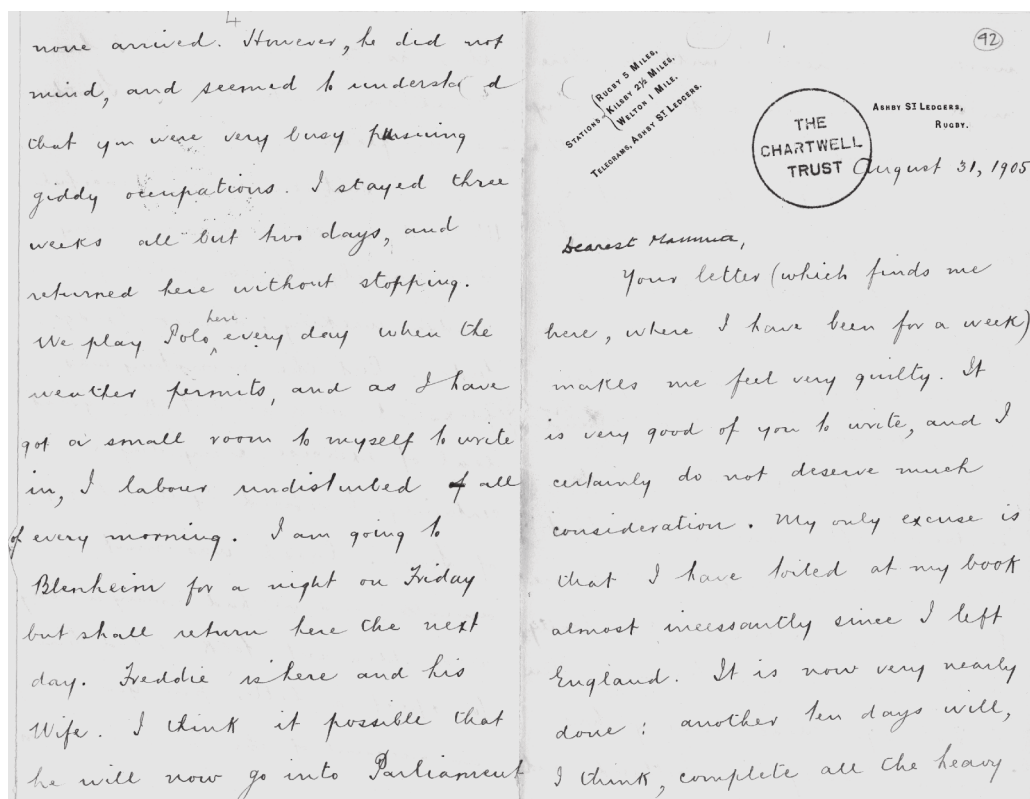 4
none arrived. However, he did not
mind, and seemed to understa d
that you were very busy pursuing
giddy occupations. I stayed three
weeks all but two days, and
returned here without stopping.
here
We play Polo every day when the
weather permits, and as I have
got a small room to myself to write
in, I labour undisturbed all
of every morning. I am going to
Blenheim for a night on Friday
but shall return here the next
day. Freddie is here and his
Wife. I think it possible that
he will now go into Parliament
1.
92
STATIONS
RUGBY 5 MILES,
KILSBY 2½ MILES,
WELTON 1 MILE.
TELEGRAMS, ASHBY ST LEDGERS.
THE
CHARTWELL
TRUST
ASHBY ST LEDGERS,
RUGBY.
August 31, 1905
Dearest Mamma,
Your letter (which finds me
here, where I have been for a week)
makes me feel very guilty. It
is very good of you to write, and I
certainly do not deserve much
consideration. My only excuse is
that I have toiled at my book
almost incessantly since I left
England. It is now very nearly
done: another ten days will,
I think, complete all the heavy